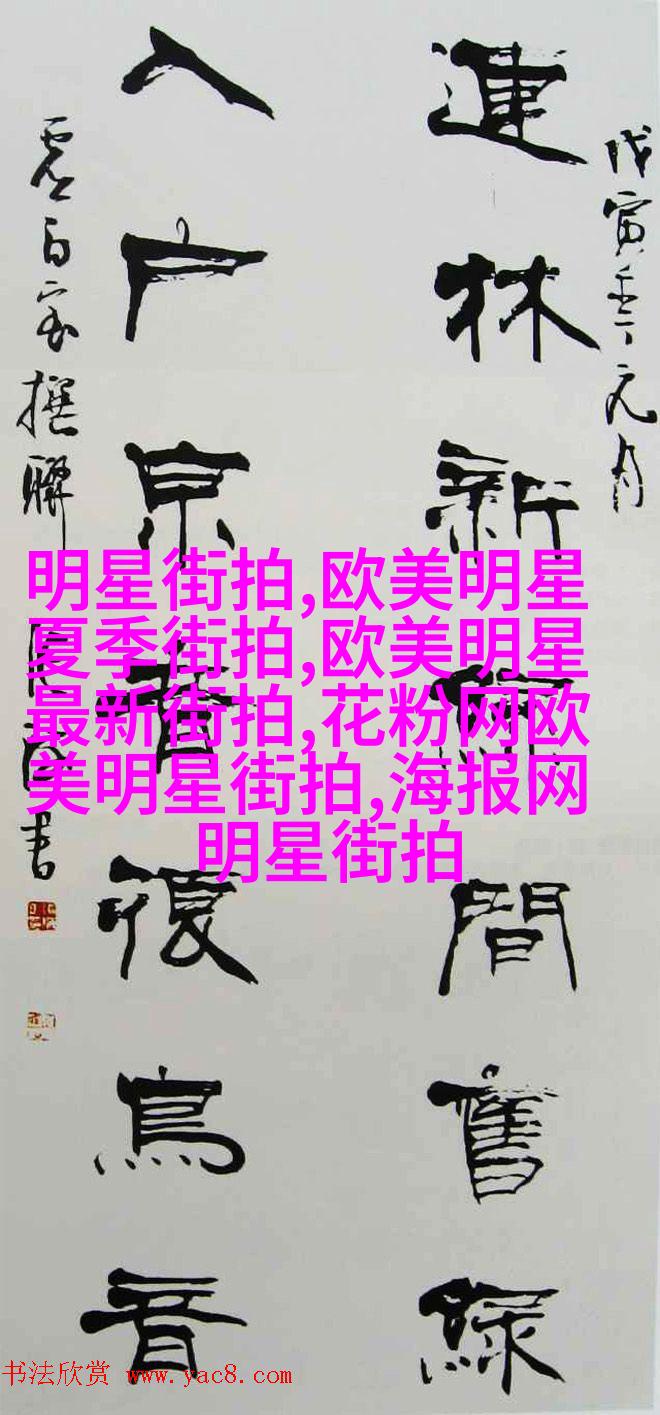 戊寅年元月
連林新間舊綠
入户鳥音
虛白撰聯書
明星街拍,欧美明星
夏季街拍,欧美明星
最新街拍,花粉网欧
美明星街拍,海报网
明星街拍
书法欣赏 www.yac8.com